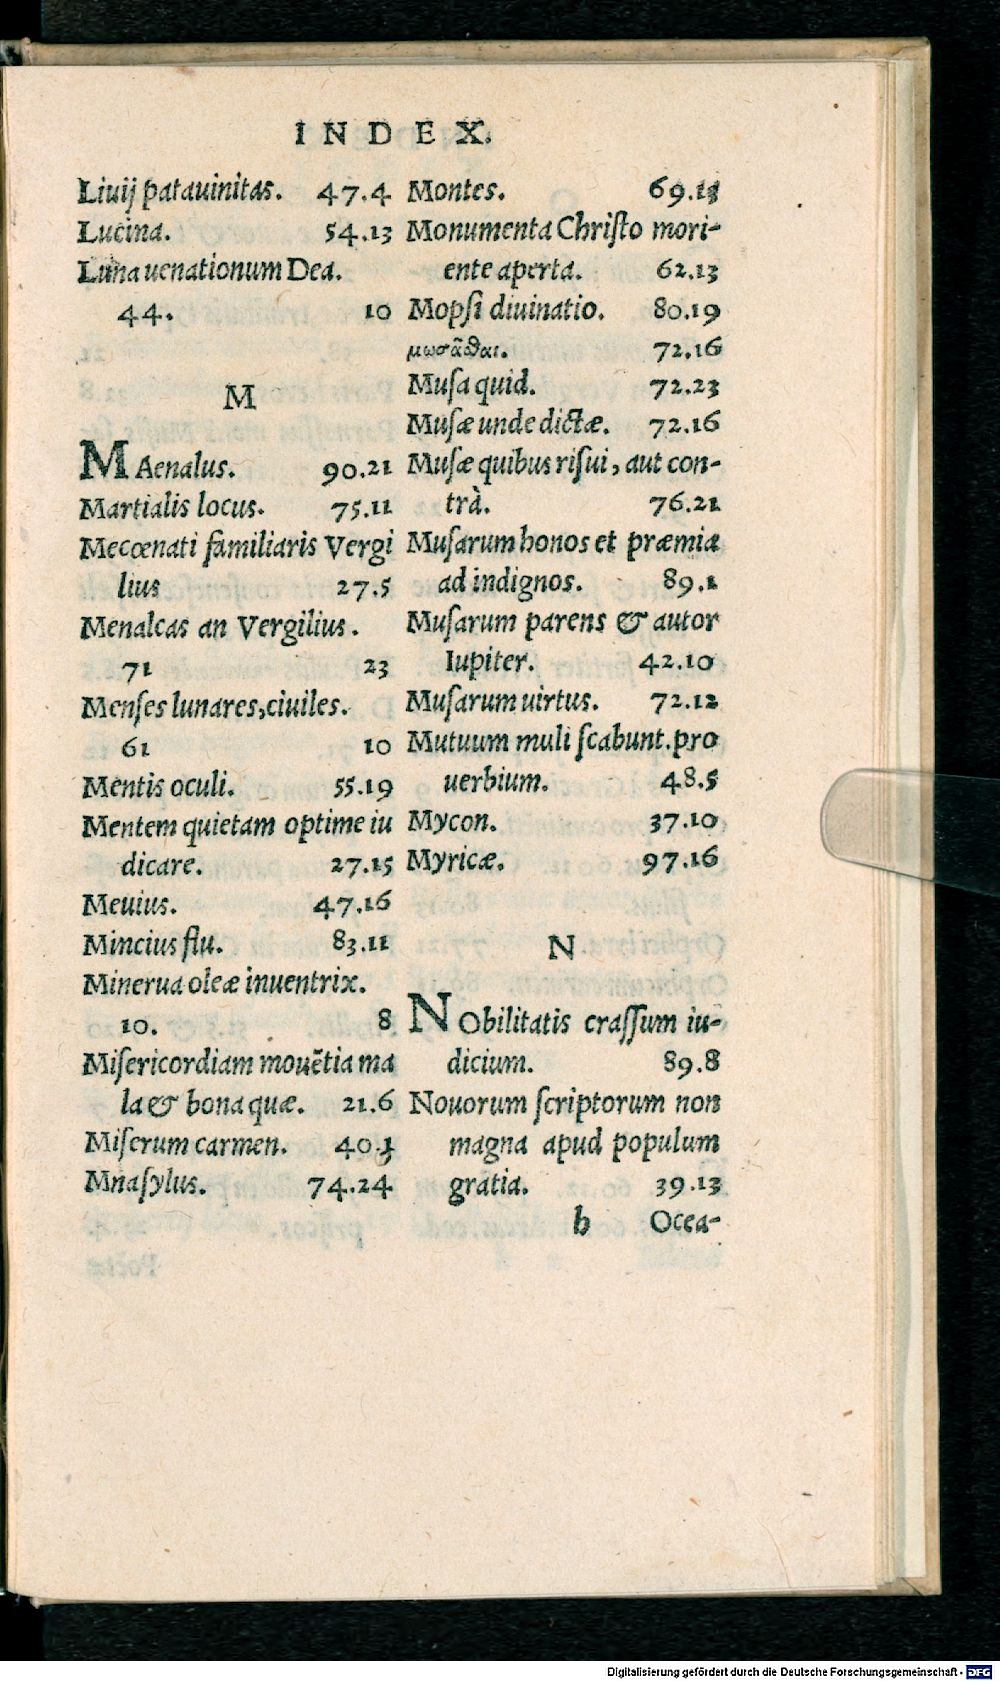 INDEX.
Liuij patauinitas. 47.4
Lucina. 54.13
Luna uenationum Dea.
44. 10
M
MAenalus. 90.21
Martialis locus. 75.11
Mecœnati familiaris Vergi
lius 27.5
Menalcas an Vergilius.
71 23
Menses lunares, ciuiles.
61 10
Mentis oculi. 55.19
Mentem quietam optime iu
dicare. 27.15
Meuius. 47.16
Mincius flu. 83.11
Minerua oleæ inuentrix.
10. 8
Miſericordiam mouẽtia ma
la & bona quæ. 21.6
Miſerum carmen. 40.3
Mnaſylus. 74.24
Montes. 69.13
Monumenta Chriſto mori-
ente aperta. 62.13
Mopſi diuinatio. 80.19
μωσᾶσθαι. 72.16
Muſa quid. 72.23
Muſæ unde dictæ. 72.16
Muſæ quibus riſui, aut con-
trà. 76.21
Muſarum honos et præmia
ad indignos. 89.1
Muſarum parens & autor
Iupiter. 42.10
Muſarum uirtus. 72.12
Mutuum muli ſcabunt. pro
uerbium. 48.5
Mycon. 37.10
Myricæ. 97.16
N
NObilitatis craſſum iu-
dicium. 89.8
Nouorum ſcriptorum non
magna apud populum
gratia. 39.13
b Ocea-
Digitalisierung gefördert durch die Deutsche Forschungsgemeinschaft - DFG